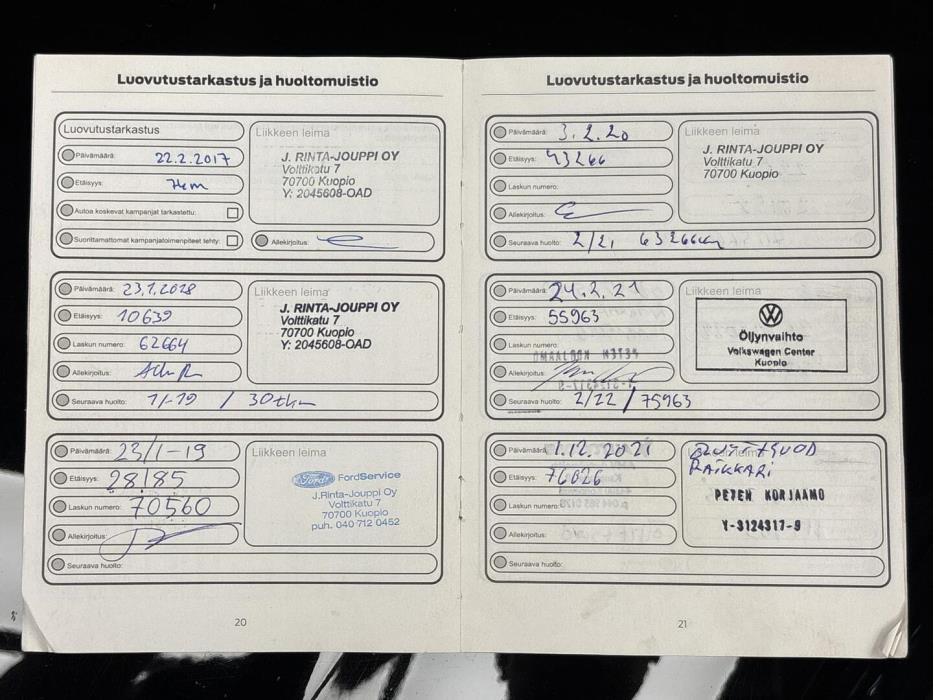 Luovutustarkastus ja huoltomuistio
Luovutustarkastus
Päivämäärä: 22.2.2017
Etäisyys: 7km
Autoa koskevat kampanjat tarkastettu:
Suorittamattomat kampanjatoimenpiteet tehty:
Liikkeen leima
J. RINTA-JOUPPI OY
Volttikatu 7
70700 Kuopio
Y: 2045608-OAD
Allekirjoitus:
Päivämäärä: 23.1.2018
Etäisyys: 10639
Laskun numero: 62664
Allekirjoitus:
Seuraava huolto: 1/-19 / 30tkm
Liikkeen leima
J. RINTA-JOUPPI OY
Volttikatu 7
70700 Kuopio
Y: 2045608-OAD
Päivämäärä: 23/1-19
Etäisyys: 28185
Laskun numero: 70560
Allekirjoitus:
Seuraava huolto:
Liikkeen leima
Ford FordService
J.Rinta-Jouppi Oy
Volttikatu 7
70700 Kuopio
puh. 040 712 0452
20
Luovutustarkastus ja huoltomuistio
Päivämäärä: 3.2.20
Etäisyys: 43266
Laskun numero:
Allekirjoitus:
Seuraava huolto: 2/21, 63266km
Liikkeen leima
J. RINTA-JOUPPI OY
Volttikatu 7
70700 Kuopio
Päivämäärä: 24.2.21
Etäisyys: 55963
Laskun numero:
Allekirjoitus:
Seuraava huolto: 2/22 / 75963
Liikkeen leima
Öljynvaihto
Volkswagen Center
Kuopio
Päivämäärä: 1.12.2021
Etäisyys: 76826
Laskun numero:
Allekirjoitus:
Seuraava huolto:
RAIKKARI
PETEN KORJAAMO
Y-3124317-9
21